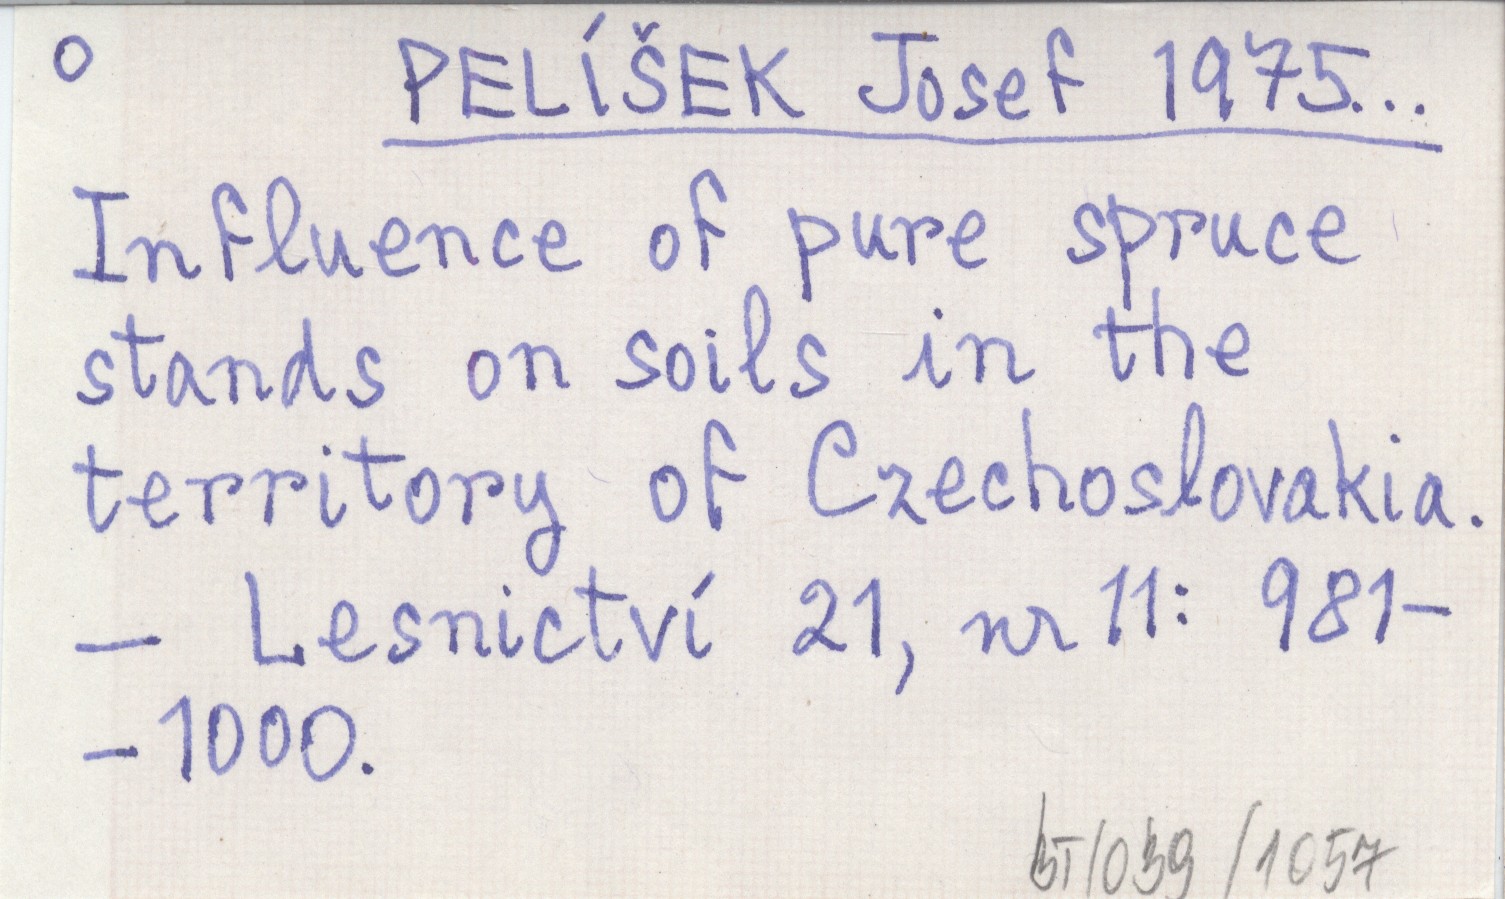 o PELÍŠEK Josef 1975...
Influence of pure spruce
stands on soils in the
territory of Czechoslovakia.
— Lesnictví 21, nr 11: 981-
-1000.
BT/039/1057